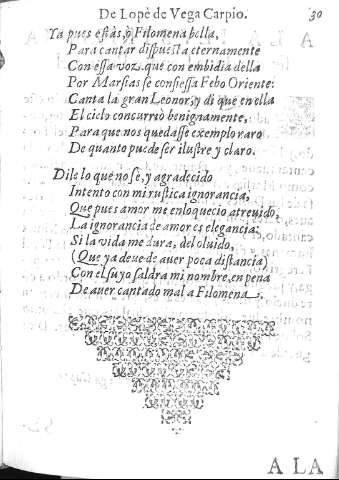 De Lope de Vega Carpio. 30
Ya pues estàs, ò Filomena bella,
Para cantar dispuesta eternamente
Con essa voz, que con embidia della
Por Marsias se confiessa Febo Oriente:
Canta la gran Leonor, y di que en ella
El cielo concurriò benignamente,
Para que nos quedasse exemplo raro
De quanto puede ser ilustre y claro.
Dile lo que no sè, y agradecido
Intento con mi rustica ignorancia,
Que pues amor me enloqueciò atrevido,
La ignorancia de amor es elegancia:
Si la vida me dura, del oluido,
(Que ya deue de auer poca distancia)
Con el suyo saldra mi nombre, en pena
De auer cantado mal a Filomena.
A LA